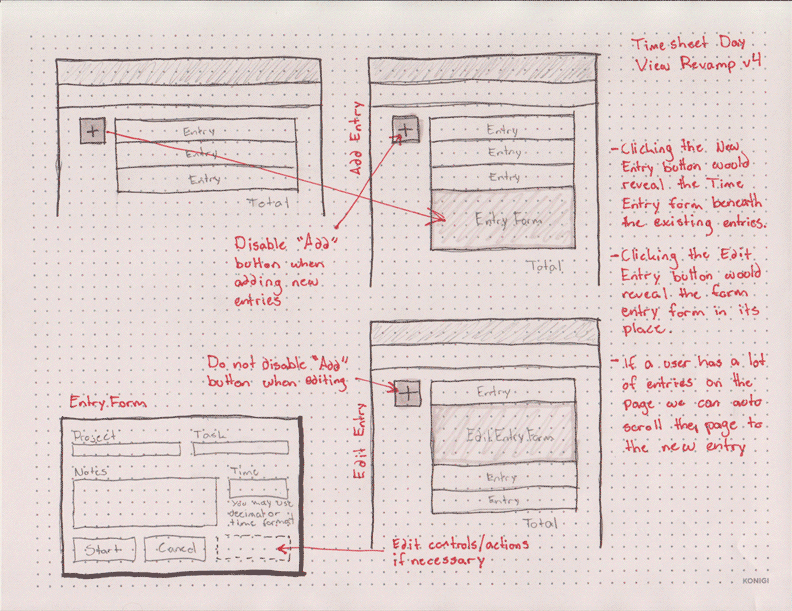 Time sheet Day
View Revamp v4
+
Entry
Entry
Entry
Total
Add Entry
+
Entry
Entry
Entry
Entry Form
Total
Disable "Add"
button when
adding new
entries
- Clicking the New
Entry button would
reveal the Time
Entry form beneath
the existing entries.
- Clicking the Edit
Entry button would
reveal the form
entry form in its
place.
- If a user has a lot
of entries on the
page we can auto
scroll the page to
the new entry
Do not disable "Add"
button when editing
Edit Entry
+
Entry
Edit Entry Form
Entry
Entry
Total
Entry Form
Project
Task
Notes
Time
You may use
decimal or
time format
Start
Cancel
Edit controls/actions
if necessary
KONIGI